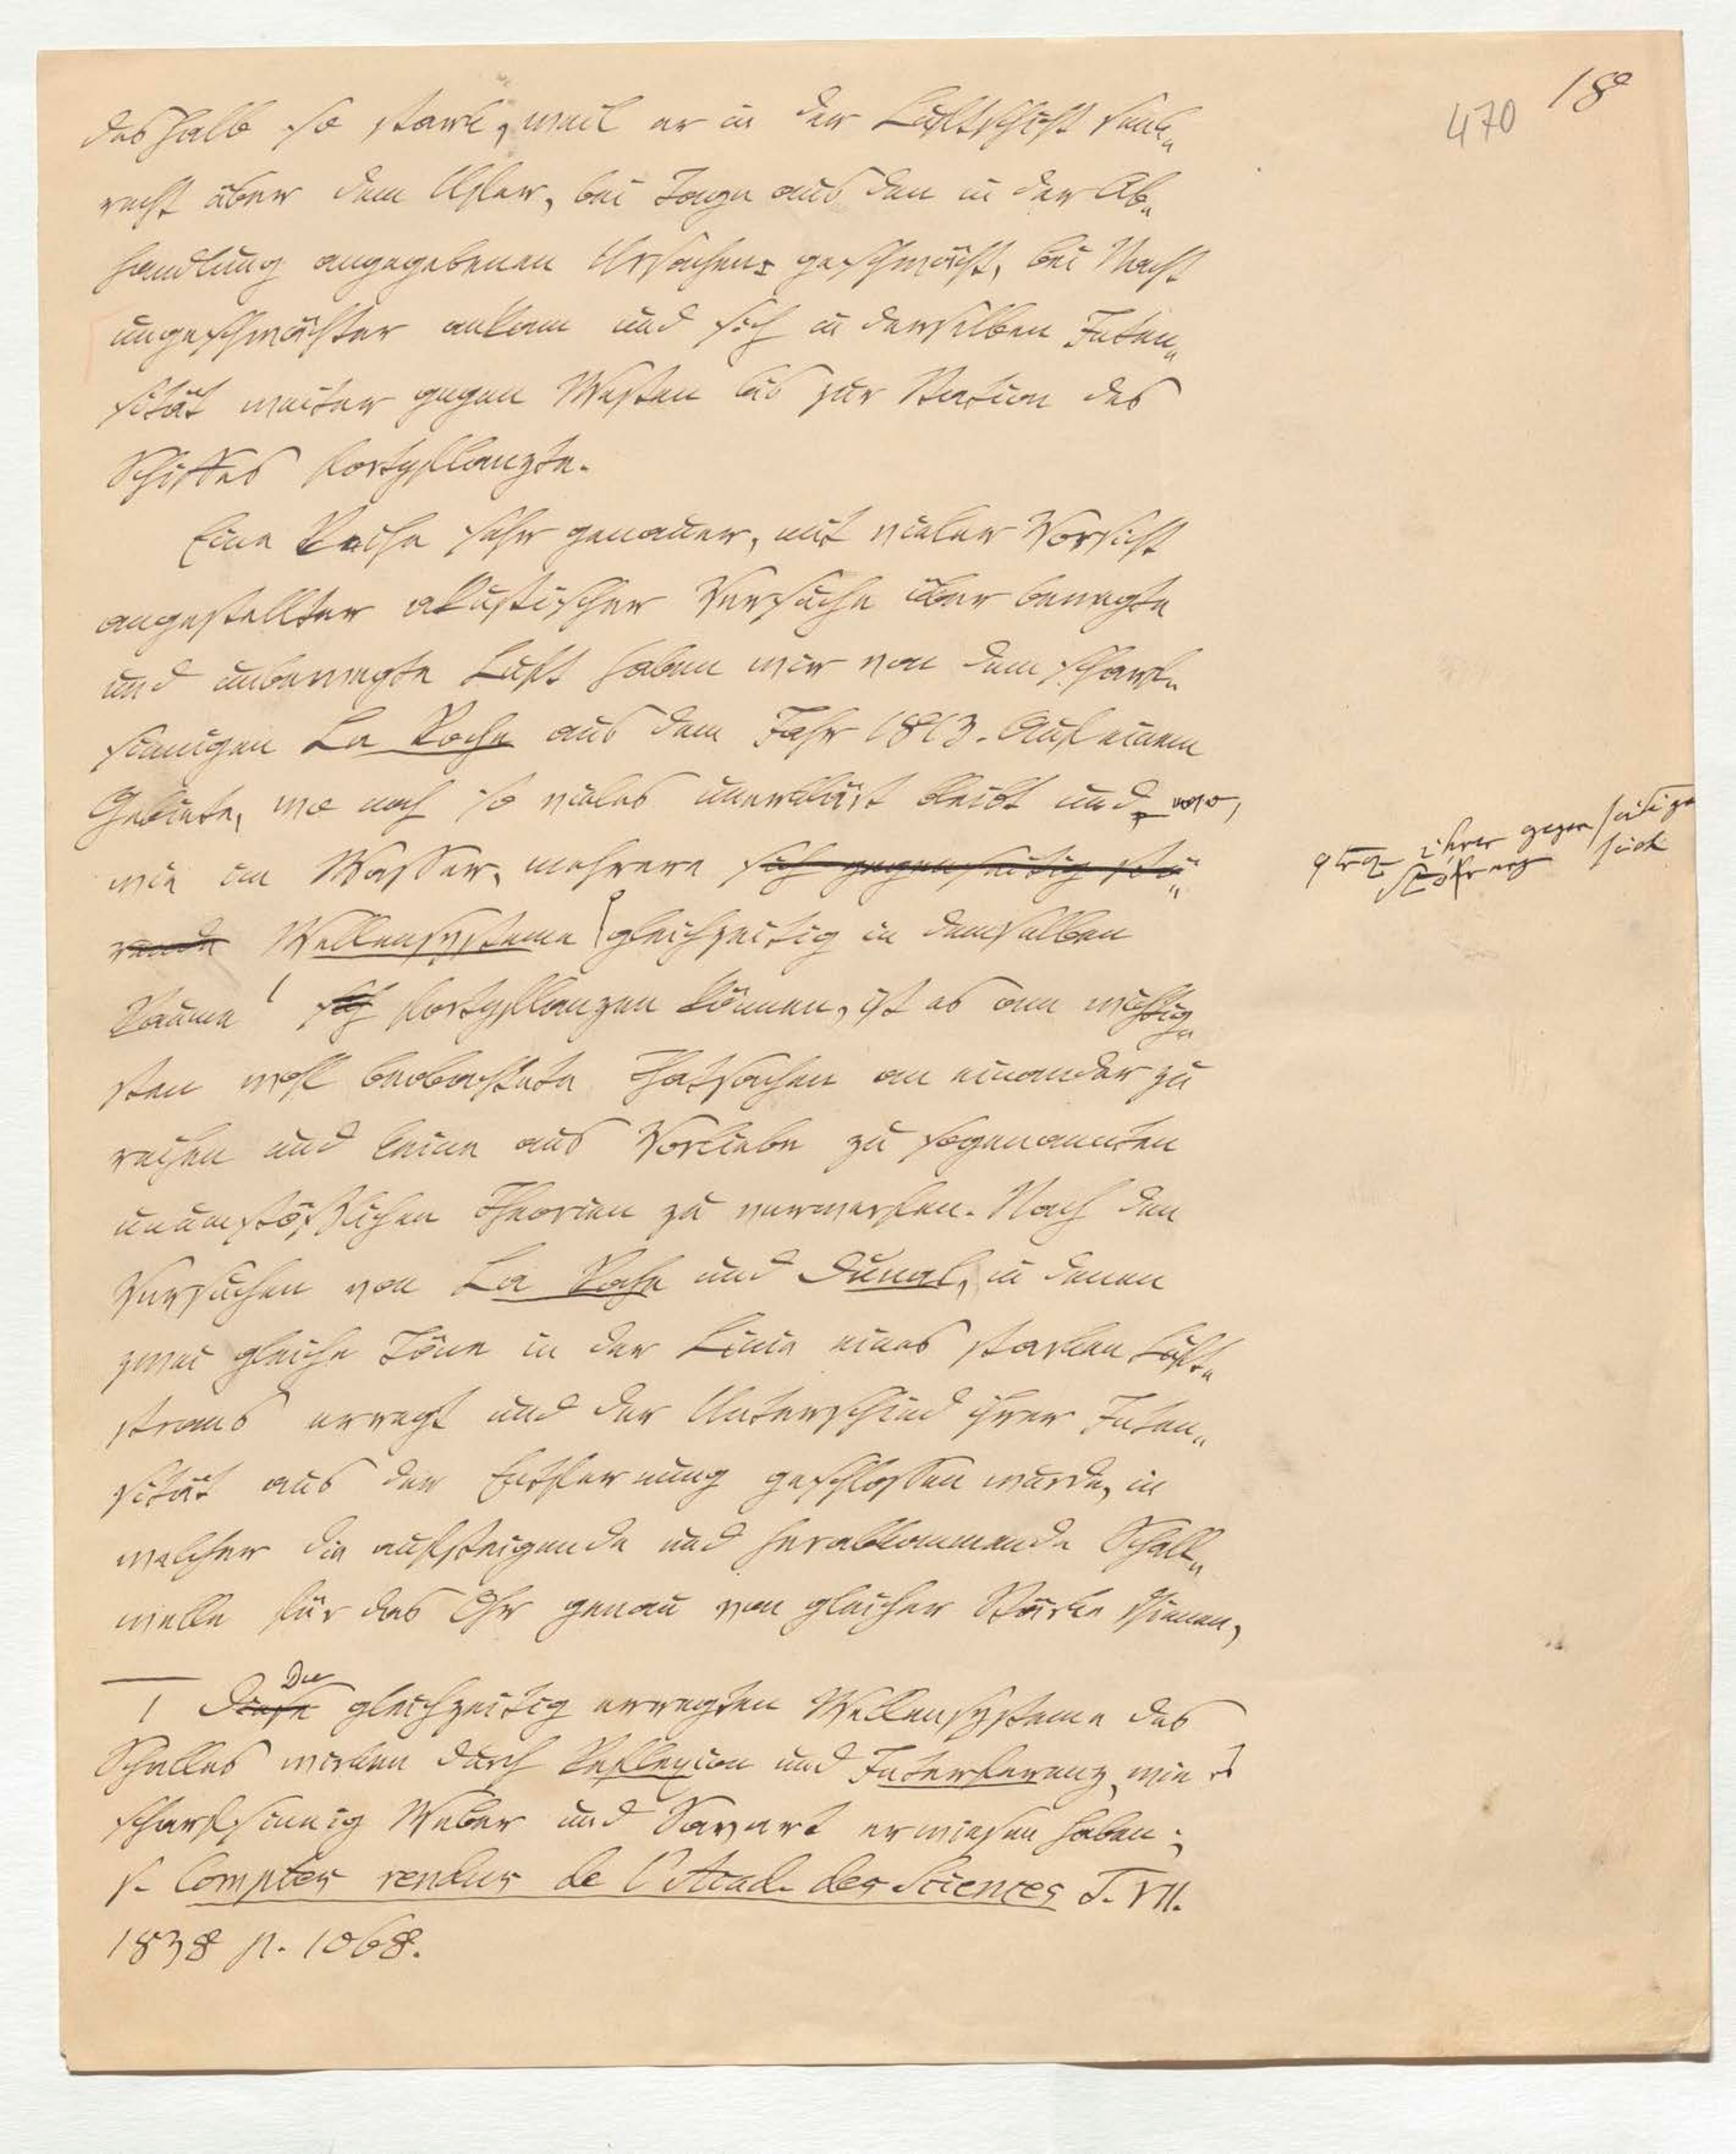 18
470
deshalb so stark, weil er in der Luftschicht senk„
recht über dem Ufer, bei Tage aus den in der Ab„
handlung angegebenen Ursachen geschwächt, bei Nacht
ungeschwächter ankam und sich in derselben Inten„
sität weiter gegen Westen bis zur Station des
Schiffes fortpflanzte.
Eine Reihe sehr genauer, mit vieler Vorsicht
angestellter akustischer Versuche über bewegte
und unbewegte Luft haben wir von dem scharf„
sinnigen La Roche aus dem Jahr 1813. Auf einem
Gebiete, wo noch so vieles unerklärt bleibt und, wo,
wie im Wasser, mehrere sich gegenseitig stö„
rende Wellensysteme gleichzeitig in demselben
trotz ihrer gegenseitigen
Störung sich
Raume 1 sich fortpflanzen können, ist es am wichtig„
sten wohl beobachtete Thatsachen an einander zu
reihen und keine aus Vorliebe zu sogenannten
unumstößlichen Theorien zu verwerfen. Nach den
Versuchen von La Roche und Dunal, in denen
zwei gleiche Töne in der Linie eines starken Luft„
stroms erregt und der Unterschied ihrer Inten„
sität aus der Entfernung geschlossen wurde, in
welcher die aufsteigende und herabkommende Schall„
welle für das Ohr genau von gleicher Stärke schienen,
1 Diese Die gleichzeitig erregten Wellensysteme des
Schalles wirken durch Reflexion und Interferenz, wie es
scharfsinnig Weber und Savart erwiesen haben;
s. Comptes rendus de l'Acad. des Sciences T. VII.
1838 p. 1068.